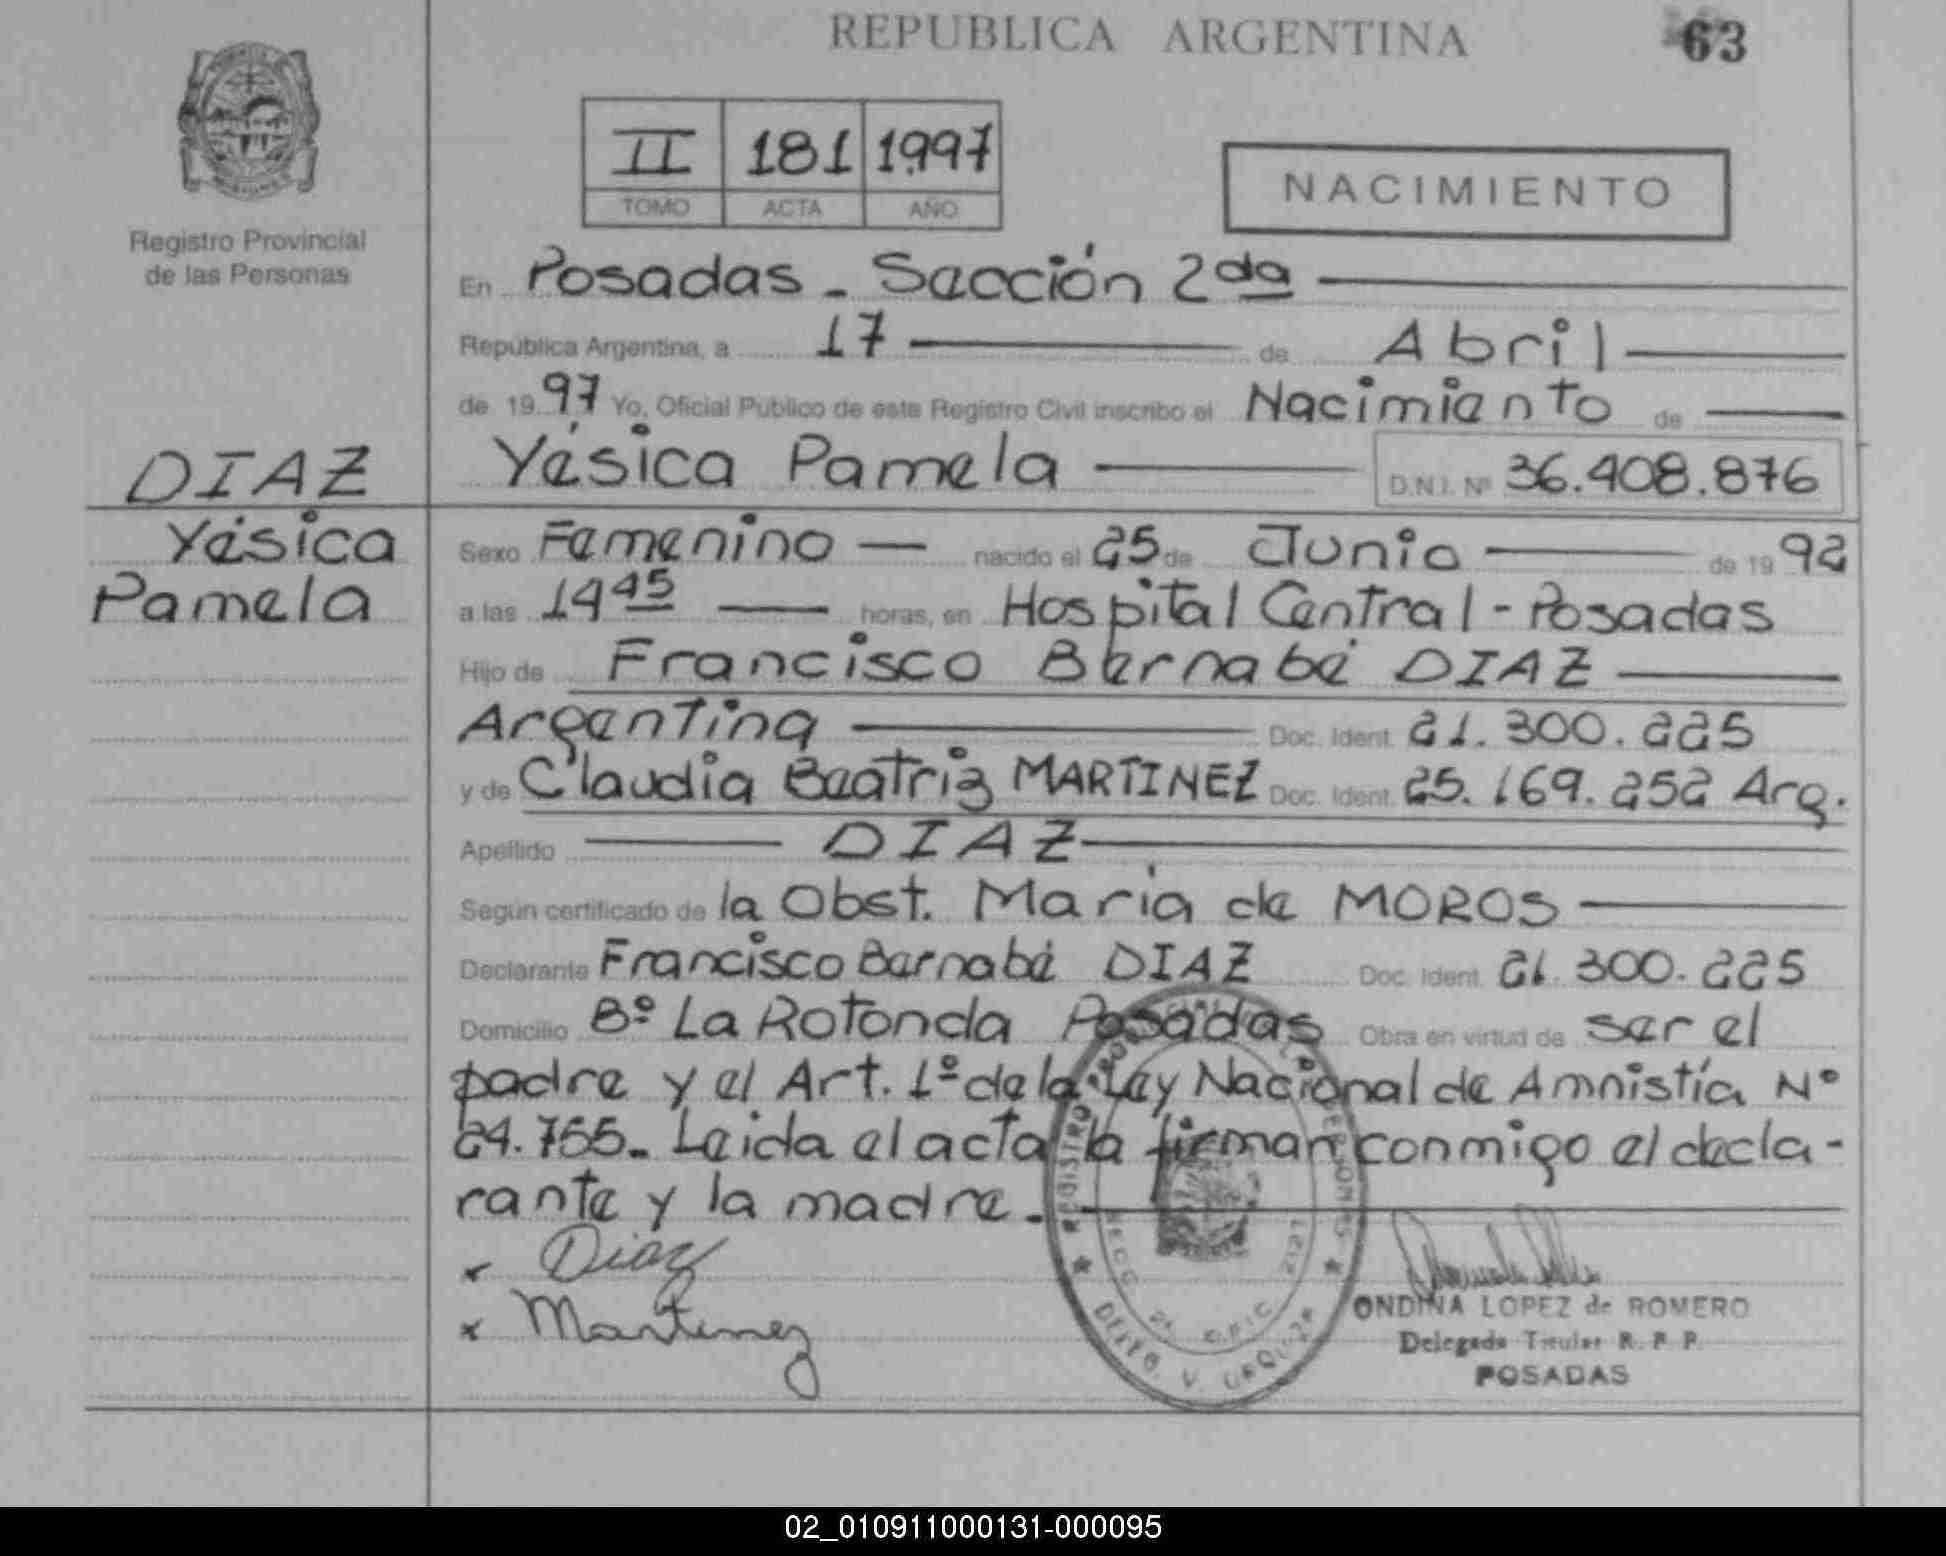 REPUBLICA ARGENTINA
63
II 181 1997
TOMO ACTA AÑO
NACIMIENTO
Registro Provincial
de las Personas
En Posadas - Sección 2da
República Argentina, a 17 de Abril
de 1997 Yo, Oficial Público de este Registro Civil inscribo el Nacimiento de
DIAZ
Yésica
Pamela
Yésica Pamela D.N.I. Nº 36.408.876
Sexo Femenino nacido el 25 de Junio de 1992
a las 14 45 horas, en Hospital Central - Posadas
Hijo de Francisco Bernabé DIAZ
Argentina Doc. Ident. 21.300.225
y de Claudia Beatriz MARTINEZ Doc. Ident. 25.169.252 Arg.
Apellido DIAZ
Según certificado de la Obst. Maria de MOROS
Declarante Francisco Bernabé DIAZ Doc. Ident. 21.300.225
Domicilio Bº La Rotonda Posadas Obra en virtud de ser el
padre y el Art. 1º de la Ley Nacional de Amnistía Nº
24.755. Leida el acta la firman conmigo el decla-
rante y la madre.
x Diaz
x Martinez
ONDINA LOPEZ de ROMERO
Delegada Titular R. P. P.
POSADAS
02_010911000131-000095